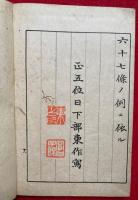 六十七條ノ例ニ依ル
正五位日下部東作寫